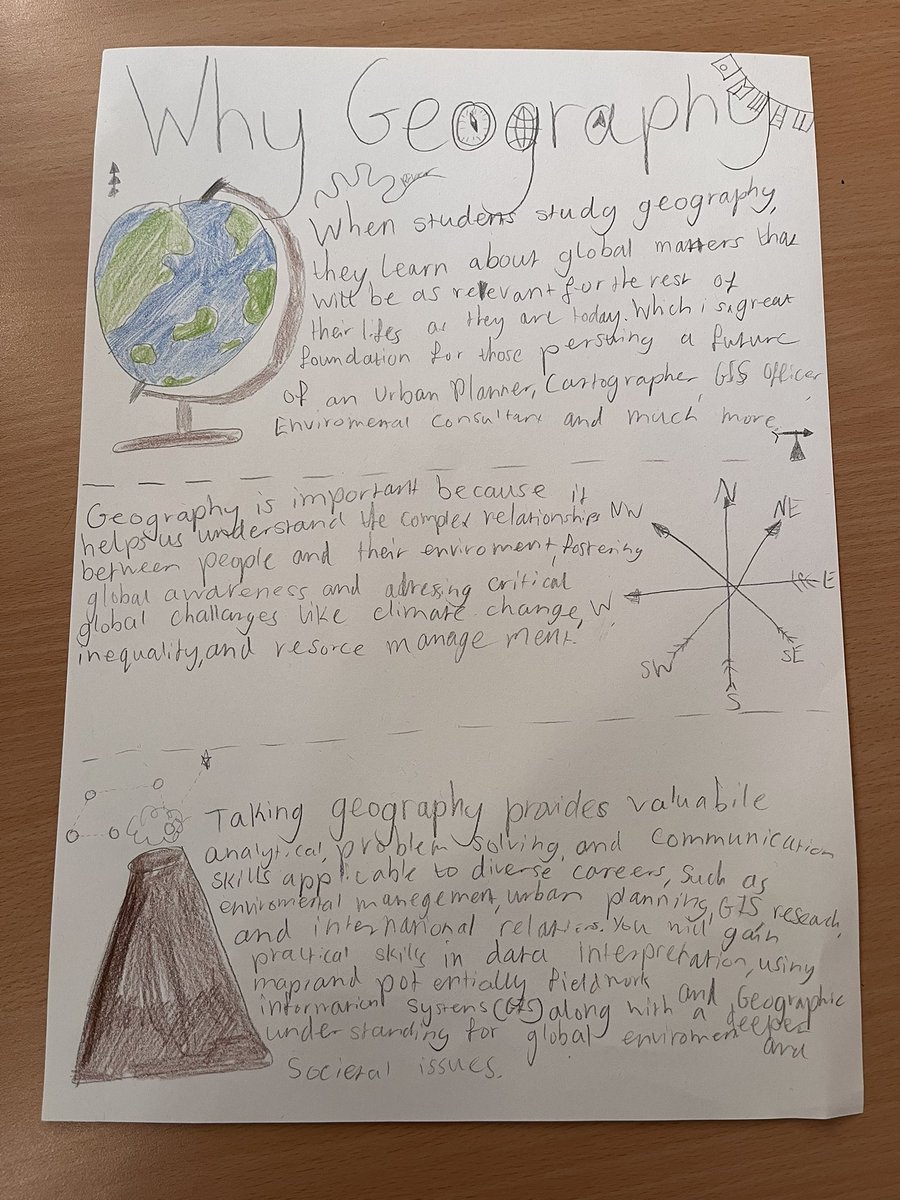 Why Geography
When students study geography,
they learn about global matters that
will be as relevant for the rest of
their lifes as they are today. Which is a great
foundation for those persuing a future
of an Urban Planner, Cartographer, GIS Officer,
Enviromental Consultant and much more.
Geography is important because it
helps us understand the complex relationships
between people and their enviroment, fostering
global awareness and adresing critical
global challanges like climate change,
inequality, and resorce manage ment.
N
NE
E
SE
S
SW
W
NW
Taking geography provides valuabile
analytical, problem solving, and communication
skills applicable to diverse careers, such as
enviromental manegement, urban planning, GIS research,
and international relations. You will gain
practical skills in data interpretation, using
maps and pot entially fieldwork
and Geographic
information systems (GIS) along with a deeper
understanding for global enviroment and
Societal issues.